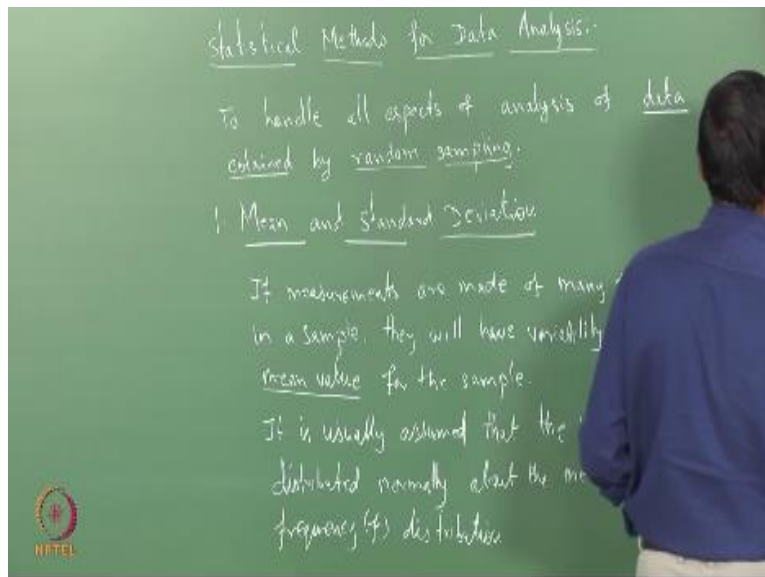 Statistical Methods for Data Analysis..
To handle all aspects of analysis of data
obtained by random sampling.
1. Mean and Standard Deviation
If measurements are made of many
in a sample, they will have variability
mean value for the sample.
It is usually assumed that the
distributed normally about the
frequency (f) distribution
NPTEL